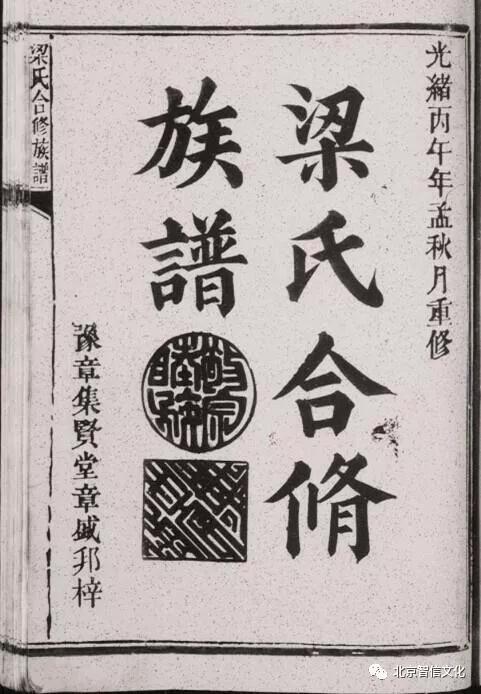 光緒丙午年孟秋月重修
梁氏合脩
族譜
豫章集賢堂章
邦梓
梁氏合修族譜
北京智信文化